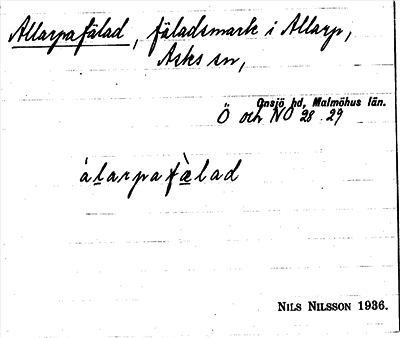 Allarpafälad, fäladsmark i Allarp,
Asks sn,
Onsjö hd, Malmöhus län.
Ö och NO 28 29
àlarpafæ̀lad
NILS NILSSON 1936.